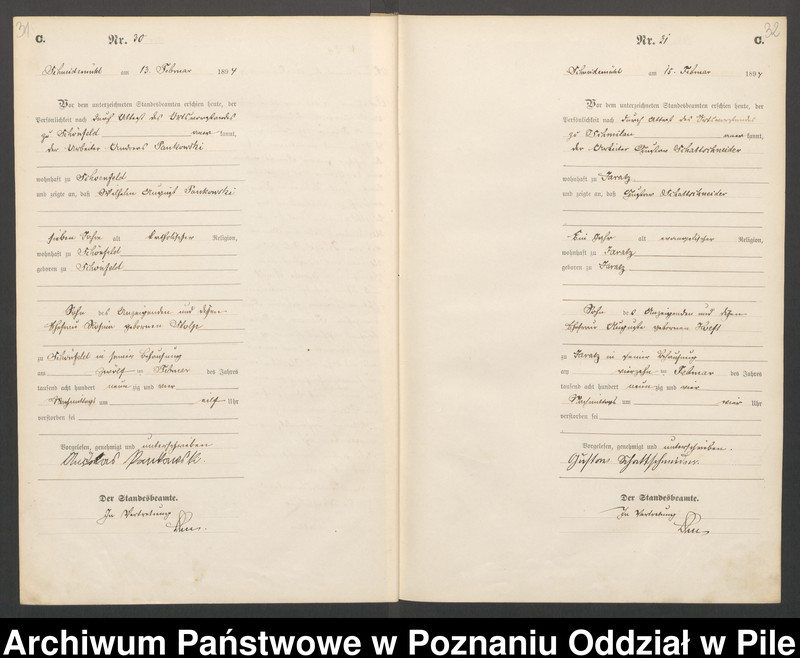 31
C.
Nr. 30
Schneidemühl am 13. Februar 1894
Vor dem unterzeichneten Standesbeamten erschien heute, der
Persönlichkeit nach durch Attest des Ortsvorstandes
zu Schönfeld aner kannt,
der Arbeiter Andreas Pankowski
wohnhaft zu Schoenfeld
und zeigte an, daß Wilhelm August Pankowski
sieben Jahre alt katholischer Religion,
wohnhaft zu Schönfeld
geboren zu Schönfeld
Sohn des Anzeigenden und dessen
Ehefrau geborenen Stolp
zu Schönfeld in seiner Behausung
am zwölf ten Februar des Jahres
tausend acht hundert neun zig und vier
Nachmittags um elf Uhr
verstorben sei
Vorgelesen, genehmigt und unterschrieben
Andreas Pankowski.
Der Standesbeamte.
In Vertretung
32
Nr. 31
C.
Schneidemühl am 15. Februar 1894
Vor dem unterzeichneten Standesbeamten erschien heute, der
Persönlichkeit nach durch Attest des Ortsvorstandes
zu aner kannt,
der Arbeiter Gustav Schattschneider
wohnhaft zu Jaratz
und zeigte an, daß Gustav Schattschneider
Ein Jahr alt evangelischer Religion,
wohnhaft zu Jaratz
geboren zu Jaratz
Sohn des Anzeigenden und dessen
Ehefrau Auguste geborenen
zu Jaratz in seiner Behausung
am vierzehn ten Februar des Jahres
tausend acht hundert neun zig und vier
Nachmittags um vier Uhr
verstorben sei
Vorgelesen, genehmigt und unterschrieben.
Gustav Schattschneider.
Der Standesbeamte.
In Vertretung
Archiwum Państwowe w Poznaniu Oddział w Pile